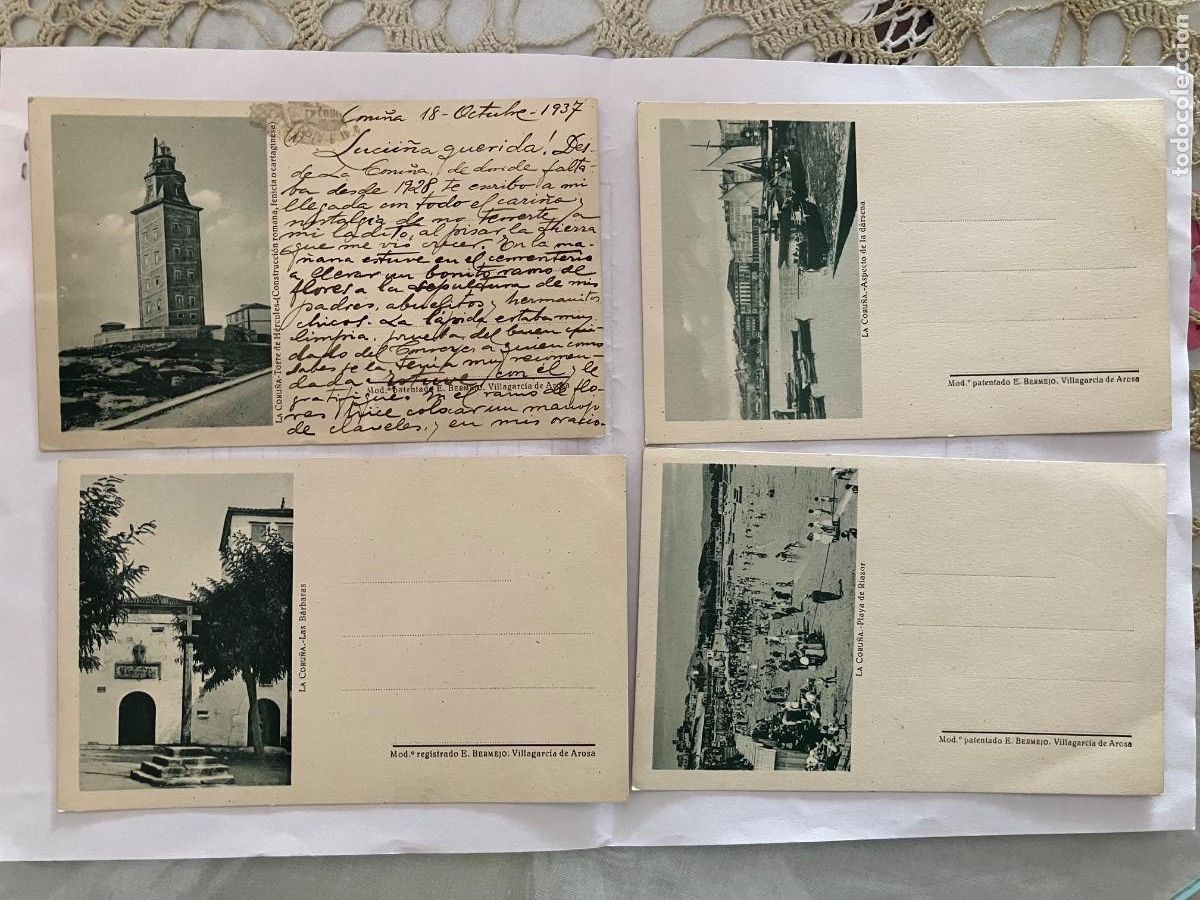 todocoleccion
Coruña 18-Octubre-1937
Luciíña querida! Des-
de La Coruña, de donde falta-
ba desde 1928, te escribo a mi
llegada con todo el cariño y
nostalgia de no tenerte a
mi ladito, al pisar la tierra
que me vio crecer. En la ma-
ñana estuve en el cementerio
a llevar un bonito ramo de
flores a la sepultura de mis
padres, abuelitos y hermanitos
chicos. La lápida estaba muy
limpia, prueba del buen cui-
dado del Conserje, a quien como
sabes se la tenía muy recomen-
dada estuve con él y le
gratifiqué. En el ramo de flo-
res hice colocar un manojo
de claveles, y en mis oracio-
LA CORUÑA-Torre de Hércules-(Construcción romana, fenicia o cartaginesa)
Mod.º patentado E. BERMEJO. Villagarcía de Arosa
LA CORUÑA.-Aspecto de la dársena
Mod.º patentado E. BERMEJO. Villagarcía de Arosa
LA CORUÑA.-Las Bárbaras
Mod.º registrado E. BERMEJO. Villagarcía de Arosa
LA CORUÑA.-Playa de Riazor
Mod.º patentado E. BERMEJO. Villagarcía de Arosa